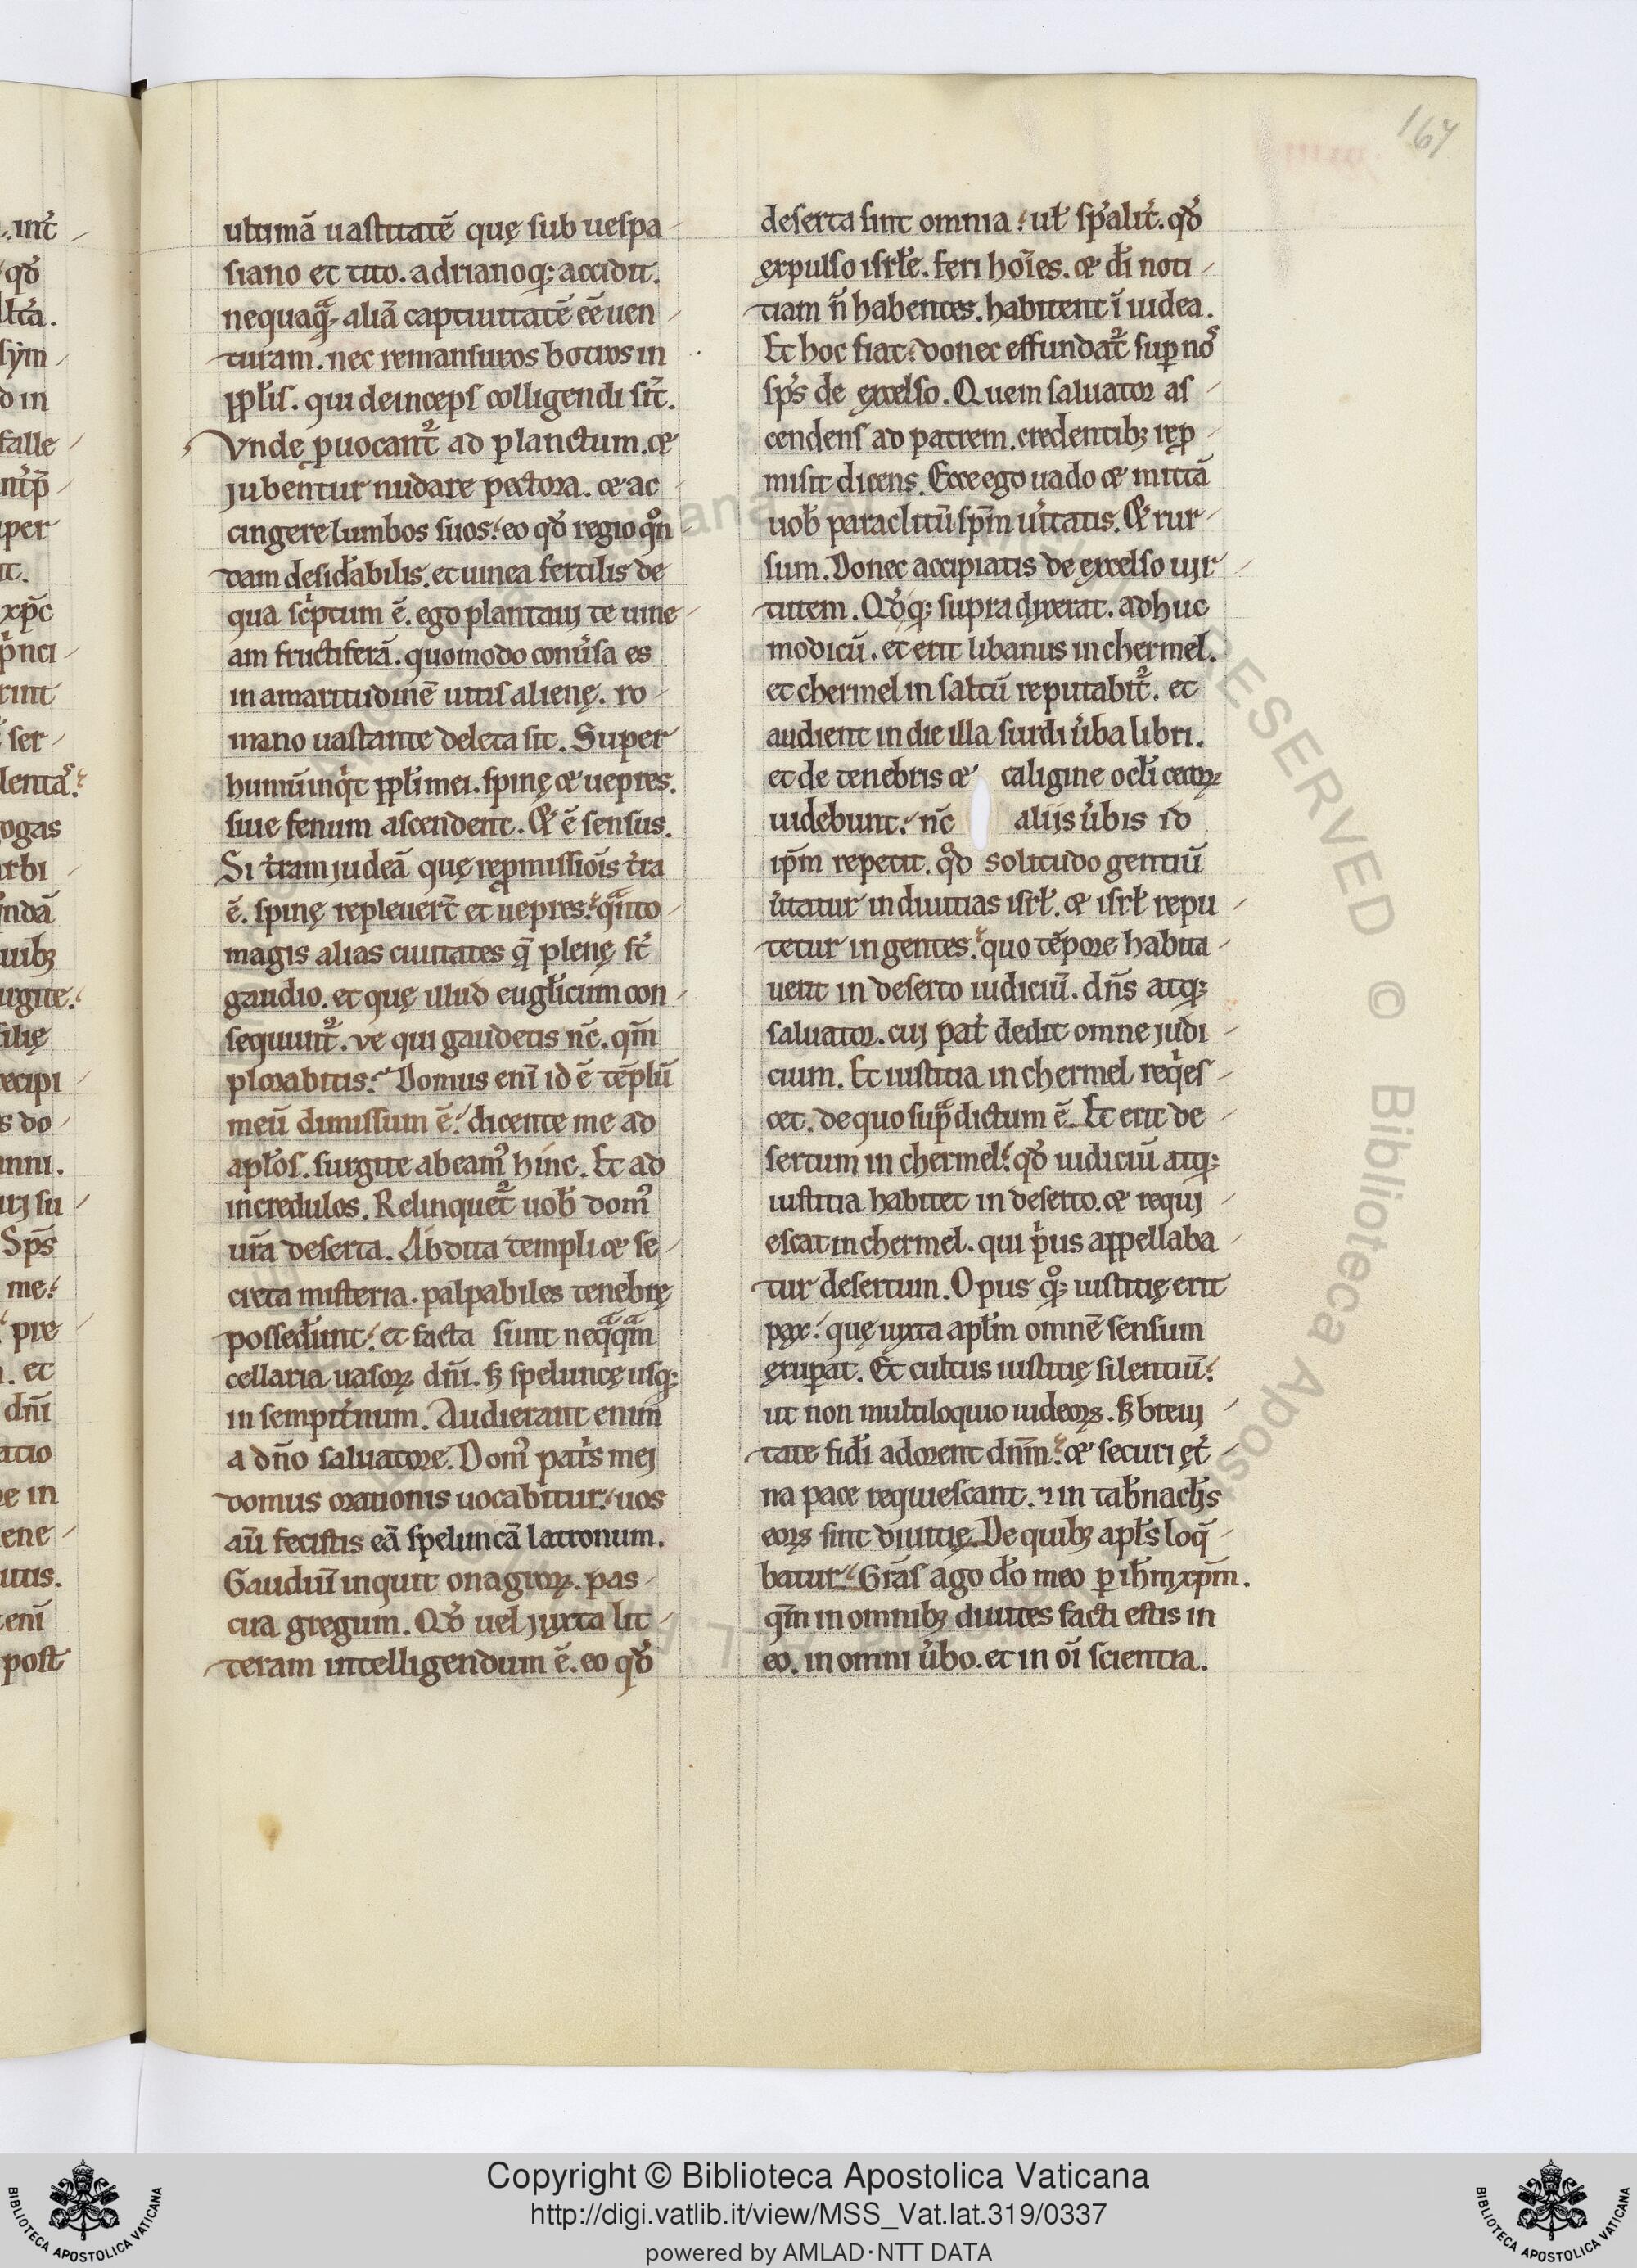 167
ultimā uastitatē quę sub uespa-
siano et tito. adrianoq; accidit.
nequaq̃ aliā captiuitatē ēē uen-
turam. nec remansuros botros in
ppl̃is. qui deinceps colligendi sīt.
Vnde puocant᷑ ad planctum. et
jubentur nudare pectora. et ac-
cingere lumbos suos. eo qđ regio qͦn-
dam desid̃abilis. et uinea fertilis de
qua sc̃ptum ē. ego plantauj te uine-
am fructiferā. quomodo conũsa es
in amaritudinē uitis alienę. ro-
mano uastante deleta sit. Super
humū inqͥt ppl̃i mei. spinę et uepres.
siue fenum ascendent. Et ē sensus.
Si t̃ram judeā quę repmissiōis t̃ra
ē. spinę repleuer̃t et uepres. qͣnto
magis alias ciuitates q̄ plenę st̃
gaudio. et quę illud eugl̃icum con-
sequunt᷑. ve qui gaudetis nc̃. qm̃
plorabitis. Domus enī id ē tēplū
meū dimissum ē. dicente me ad
apl̃os. surgite abeamꝰ hinc. Et ad
incredulos. Relinquet᷑ uob̃ domꝰ
ur̃a deserta. Abdita templi et se-
creta misteria. palpabiles tenebrę
possed̃unt. et facta sunt neqͣqͣm
cellaria uasoꝝ dn̄i. ꜩ speluncę usq;
in sempit̃num. Audierant enim
a dn̄o saluatore. Domꝰ pat̃s mej
domus orationis uocabitur. uos
aū fecistis eā speluncā latronum.
Gaudiū inquit onagroꝝ. pas-
cua gregum. Qđ uel juxta lit-
teram intelligendum ē. eo qđ
deserta sint omnia. ul̃ sp̃alit̃. qđ
expulso isrl̃e. feri hoīes. et d̃i noti-
tiam n̄ habentes. habitent ī iudea.
Et hoc fiat. donec effundat᷑ sup noˢ
sp̄s de excelso. Quem saluator as-
cendens ad patrem. credentibꝫ rep-
misit dicens. Ecce ego uado et mittā
uob̃ paraclitū sp̄m ũitatis. Et rur-
sum. Donec accipiatis de excelso uir-
tutem. Qđq; supra dixerat. adhuc
modicū. et erit libanus in chermel.
et chermel in saltū reputabit᷑. et
audient in die illa surdi ũba libri.
et de tenebris et caligine ocl̃i cecoꝝ
uidebunt. nc̃ alijs ũbis id
ip̄m repetit. qͦd solitudo gentiū
ũtatur in diuitias isrl̃. et isrl̃ repu-
tetur in gentes. quo tēpore habita-
uerit in deserto iudiciū. dn̄s atq;
saluator. cuj pat̃ dedit omne judi-
cium. Et iustitia in chermel reqͥes-
cet. de quo supͣdictum ē. Et erit de-
sertum in chermel. qđ iudiciū atq;
iustitia habitet in deserto. et requj-
escat in chermel. qui pͥus appellaba-
tur desertum. Opus qͦ; iustitię erit
pax. quę iuxta apl̃m omnē sensum
exuperat. Et cultus iustitię silentiū.
ut non multiloquio iudeoꝝ. ꜩ breuj-
tate fid̃i adorent dn̄m. et securi et̃-
na pace requiescant. ⁊ in tab̃nacl̃js
eoꝝ sint diuitię. De quibꝫ apl̃s loq̄-
batur. Grās ago d̃o meo p ih̄m xp̄m.
qm̃ in omnibꝫ diuites facti estis in
eo. in omni ũbo. et in oī scientia.
Copyright © Biblioteca Apostolica Vaticana
http://digi.vatlib.it/view/MSS_Vat.lat.319/0337
powered by AMLAD·NTT DATA
BIBLIOTECA APOSTOLICA VATICANA
BIBLIOTECA APOSTOLICA VATICANA